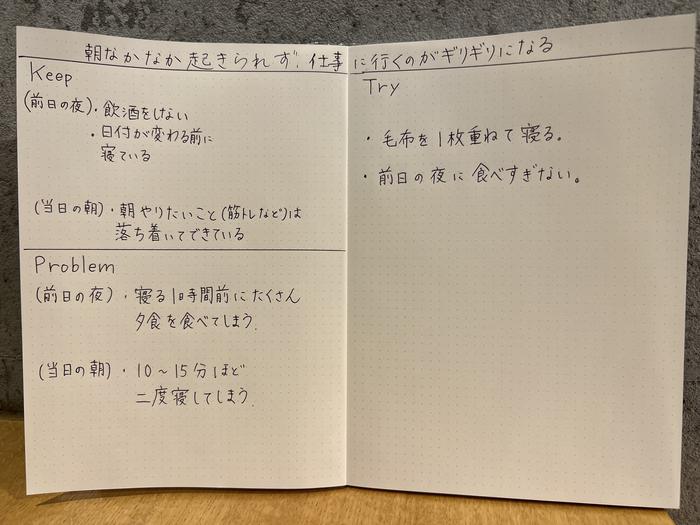 朝なかなか起きられず、仕事に行くのがギリギリになる
Keep
(前日の夜)・飲酒をしない
・日付が変わる前に
寝ている
(当日の朝)・朝やりたいこと(筋トレなど)は
落ち着いてできている
Problem
(前日の夜)・寝る1時間前にたくさん
夕食を食べてしまう.
(当日の朝)・10～15分ほど
二度寝してしまう.
Try
・毛布を1枚重ねて寝る。
・前日の夜に食べすぎない。